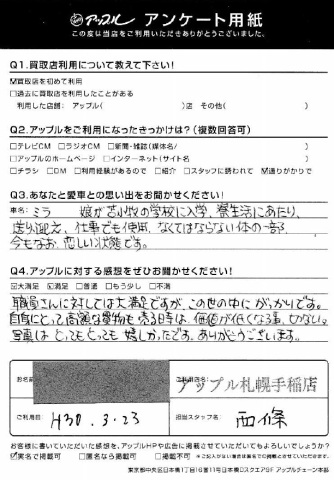 アップル アンケート用紙
この度は当店をご利用いただきありがとうございました。
Q1.買取店利用について教えて下さい!
☑買取店を初めて利用
□過去に買取店を利用したことがある
利用した店舗: アップル( )店 その他( )
Q2.アップルをご利用になったきっかけは?(複数回答可)
□テレビCM □ラジオCM □新聞・雑誌(媒体名 )
□アップルのホームページ □インターネット(サイト名 )
□チラシ □DM □利用経験があるので □紹介 □スタッフに誘われて ☑通りがかりで
Q3.あなたと愛車との思い出をお聞かせください!
車名: ミラ 娘が苫小牧の学校に入学、寮生活にあたり、
送り迎え、仕事でも使用、なくてはならない体の一部
今もなお、恋しい状態です。
Q4.アップルに対する感想をぜひお聞かせください!
☑大満足 ☑満足 □普通 □もう少し □不満
職員さんに対しては大満足ですが、この世の中にがっかりです。
自身にとって高額な買物も売る時は、価値が低くなる事、切ない。
写真はとってもとっても嬉しかったです。ありがとうございます。
お名前
ご利用店名:
アップル札幌手稲店
ご利用日 H30.3.23
担当スタッフ名: 西條
お客様に書いていただいた感想を、アップルHPや広告に掲載させていただいてもよろしいでしょうか?
☑実名で掲載可 □匿名なら掲載可 □掲載不可
東京都中央区日本橋1丁目16番11号日本橋Dスクエア5F アップルチェーン本部